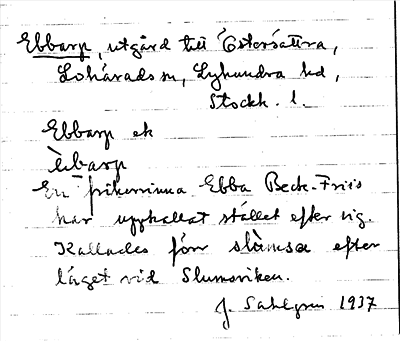 Ebbarp, utgård till Östersättra,
Lohärads sn, Lyhundra hd,
Stockh. l.
Ebbarp ek
èbarp
En friherrinna Ebba Beck-Friis
har uppkallat stället efter sig.
Kallades förr slàmsa efter
läget vid Slumsviken.
J. Sahlgren 1937